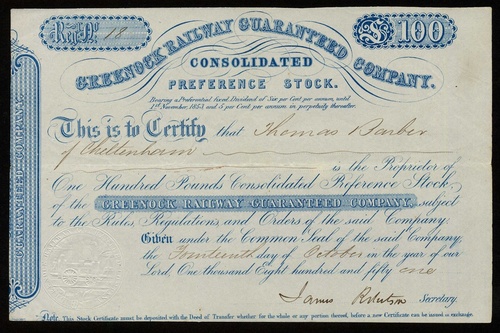 Reg. No. 18
£ 100
GREENOCK RAILWAY GUARANTEED COMPANY.
CONSOLIDATED
PREFERENCE STOCK.
Bearing a Preferential fixed Dividend of Six per Cent per annum, until
1st November, 1853, and 5 per Cent per annum in perpetuity thereafter.
This is to Certify that Thomas Barber
of Cheltenham
is the Proprietor of
One Hundred Pounds Consolidated Preference Stock
of the GREENOCK RAILWAY GUARANTEED COMPANY, subject
to the Rules, Regulations, and Orders of the said Company;
Given under the Common Seal of the said Company,
the Fourteenth day of October in the year of our
Lord One thousand Eight hundred and fifty one
James Roberton Secretary.
Note. This Stock Certificate must be deposited with the Deed of Transfer whether for the whole or any portion thereof, before a new Certificate can be issued in exchange.
GUARANTEED COMPANY